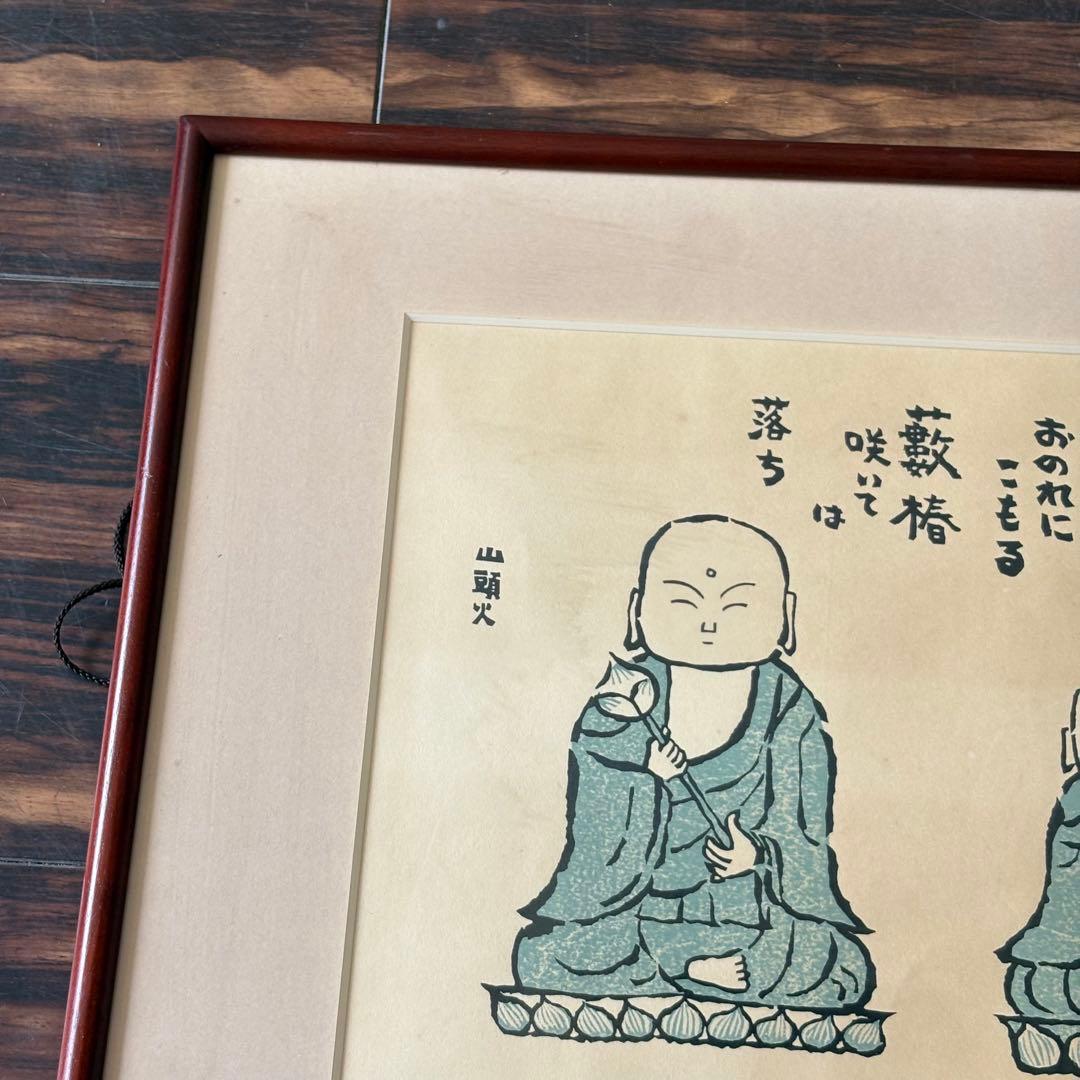 おのれに
こもる
藪椿
咲いて
は
落ち
山頭火